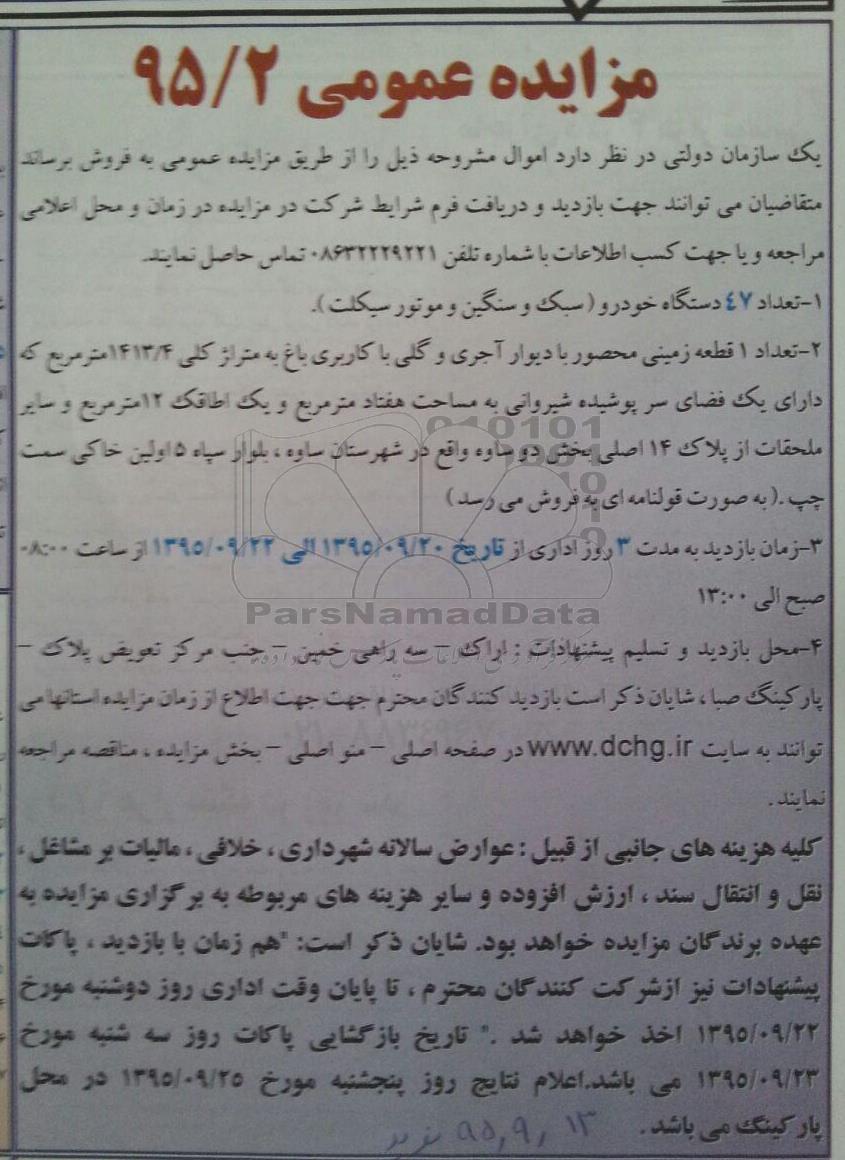 مزایده عمومی ۹۵/۲
یک سازمان دولتی در نظر دارد اموال مشروحه ذیل را از طریق مزایده عمومی به فروش برساند
متقاضیان می توانند جهت بازدید و دریافت فرم شرایط شرکت در مزایده در زمان و محل اعلامی
مراجعه و یا جهت کسب اطلاعات با شماره تلفن ۰۸۶۳۲۲۲۹۲۲۱ تماس حاصل نمایند.
۱-تعداد ۴۷ دستگاه خودرو ( سبک و سنگین و موتور سیکلت ).
۲-تعداد ۱ قطعه زمینی محصور با دیوار آجری و گلی با کاربری باغ به متراژ کلی ۱۴۱۳/۴مترمربع که
دارای یک فضای سر پوشیده شیروانی به مساحت هفتاد مترمربع و یک اطاقک ۱۲مترمربع و سایر
ملحقات از پلاک ۱۴ اصلی بخش دو ساوه واقع در شهرستان ساوه ، بلوار سپاه ۵ اولین خاکی سمت
چپ .( به صورت قولنامه ای به فروش می رسد )
۳-زمان بازدید به مدت ۳ روز اداری از تاریخ ۱۳۹۵/۰۹/۲۰ الی ۱۳۹۵/۰۹/۲۲ از ساعت ۰۸:۰۰
صبح الی ۱۳:۰۰
ParsNamadData
۴-محل بازدید و تسلیم پیشنهادات : اراک – سه راهی خمین – جنب مرکز تعویض پلاک –
پارکینگ صبا ، شایان ذکر است بازدید کنندگان محترم جهت جهت اطلاع از زمان مزایده استانها می
توانند به سایت www.dchg.ir در صفحه اصلی – منو اصلی – بخش مزایده ، مناقصه مراجعه
نمایند .
کلیه هزینه های جانبی از قبیل : عوارض سالانه شهرداری ، خلافی ، مالیات بر مشاغل ،
نقل و انتقال سند ، ارزش افزوده و سایر هزینه های مربوطه به برگزاری مزایده به
عهده برندگان مزایده خواهد بود. شایان ذکر است: "هم زمان با بازدید ، پاکات
پیشنهادات نیز ازشرکت کنندگان محترم ، تا پایان وقت اداری روز دوشنبه مورخ
۱۳۹۵/۰۹/۲۲ اخذ خواهد شد ." تاریخ بازگشایی پاکات روز سه شنبه مورخ
۱۳۹۵/۰۹/۲۳ می باشد.اعلام نتایج روز پنجشنبه مورخ ۱۳۹۵/۰۹/۲۵ در محل
پارکینگ می باشد .
۹۵,۹,۱۳